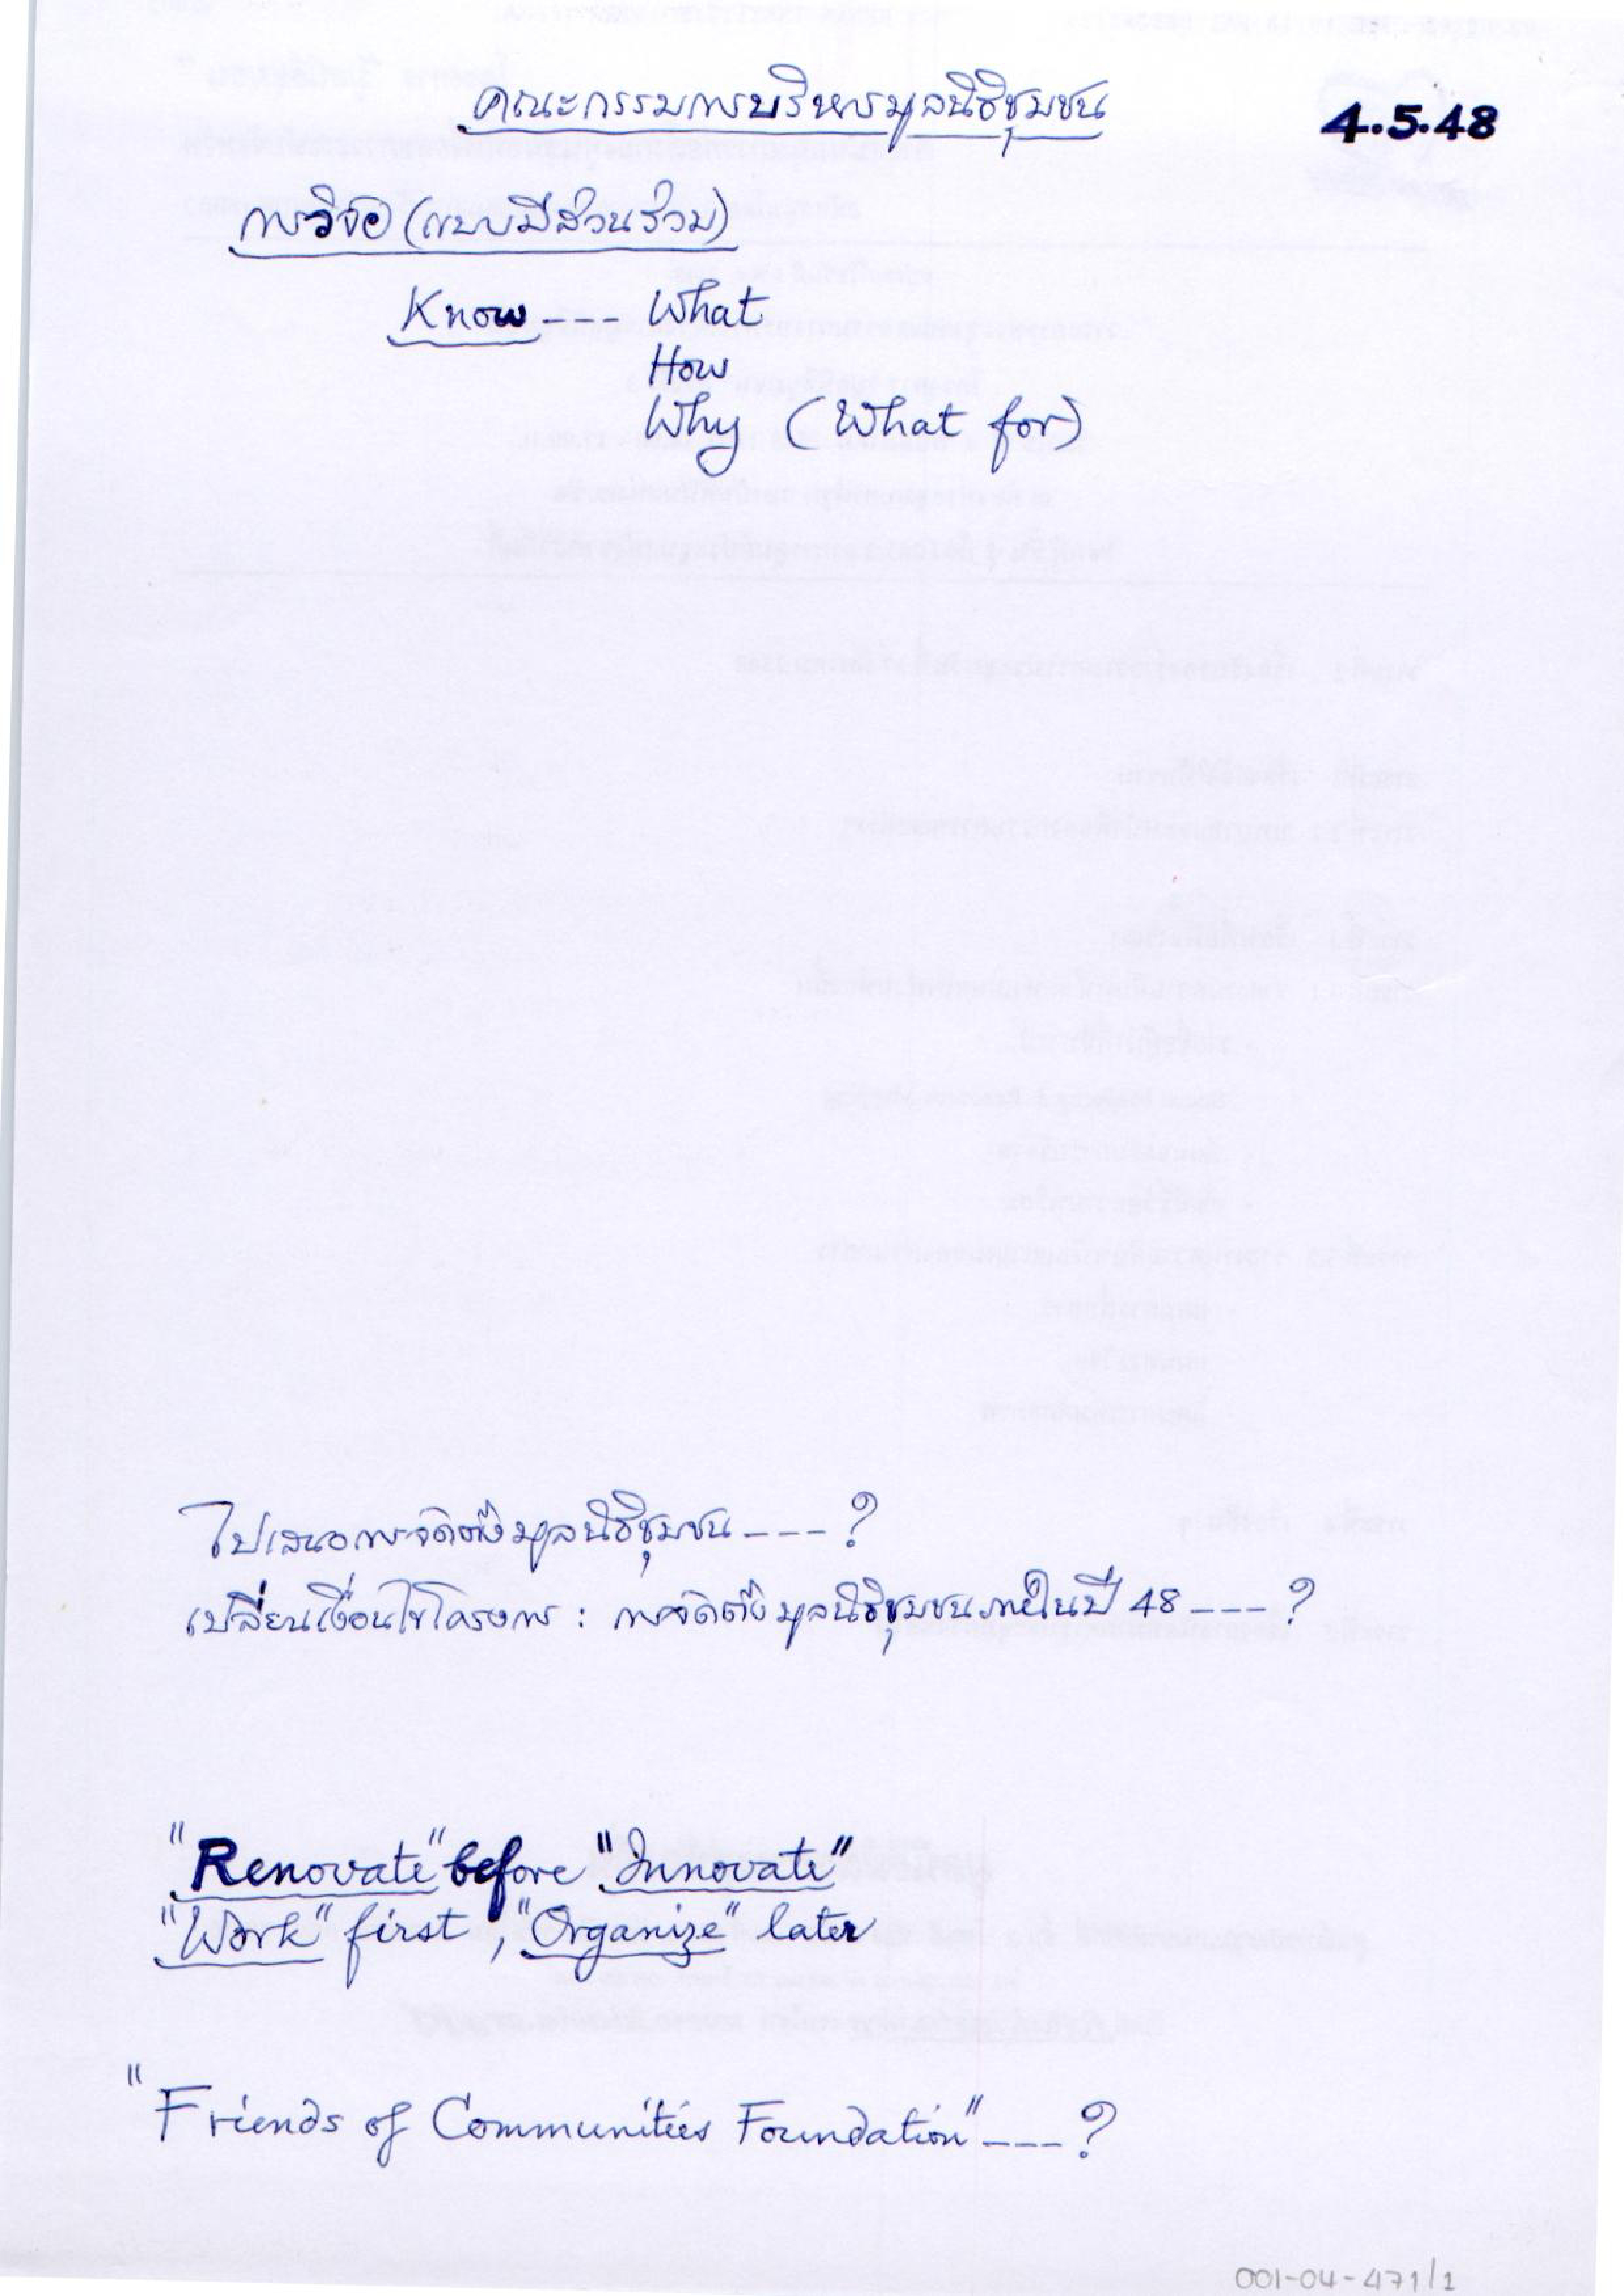 คณะกรรมการบริหารมูลนิธิชุมชน
4.5.48
การวิจัย (แบบมีส่วนร่วม)
Know --- What
How
Why (What for)
ไปเสนอการจัดตั้งมูลนิธิชุมชน ---- ?
เปลี่ยนเงื่อนไขโครงการ : การจัดตั้งมูลนิธิชุมชนภายในปี 48 --- ?
"Renovate" before "Innovate"
"Work" first, "Organize" later
"Friends of Communities Foundation" --- ?
001-04-471/1